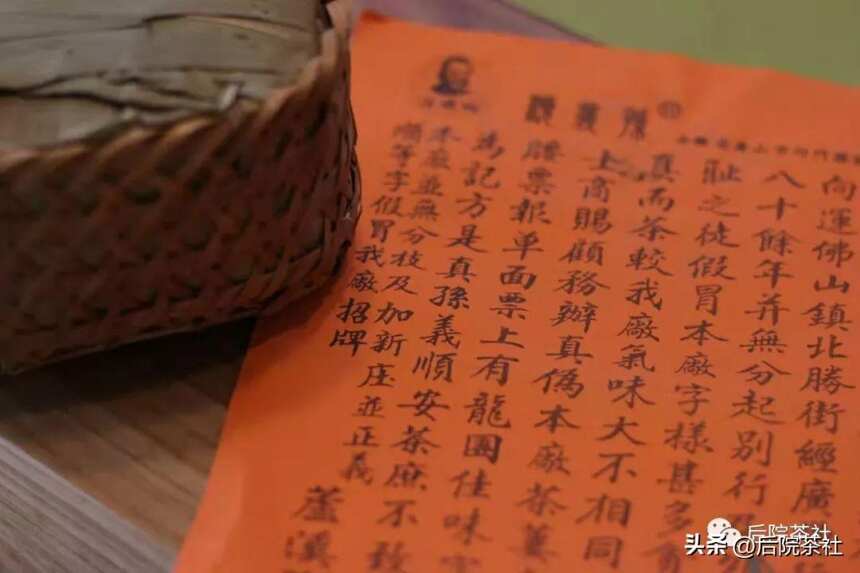 向運佛山鎮北勝街經廣
八十餘年并無分起別行
恥之徒假冒本廠字樣甚多有
真而茶較我廠氣味大不相同
上商賜顧務辨真偽本廠茶簍
腰票報单面票上有龍團佳味字
為記方是真孫義順安茶庶不致
本廠並無分枝及加新庄並正義
順等字假冒我廠招牌
蘆溪
后院茶社
头条 @后院茶社